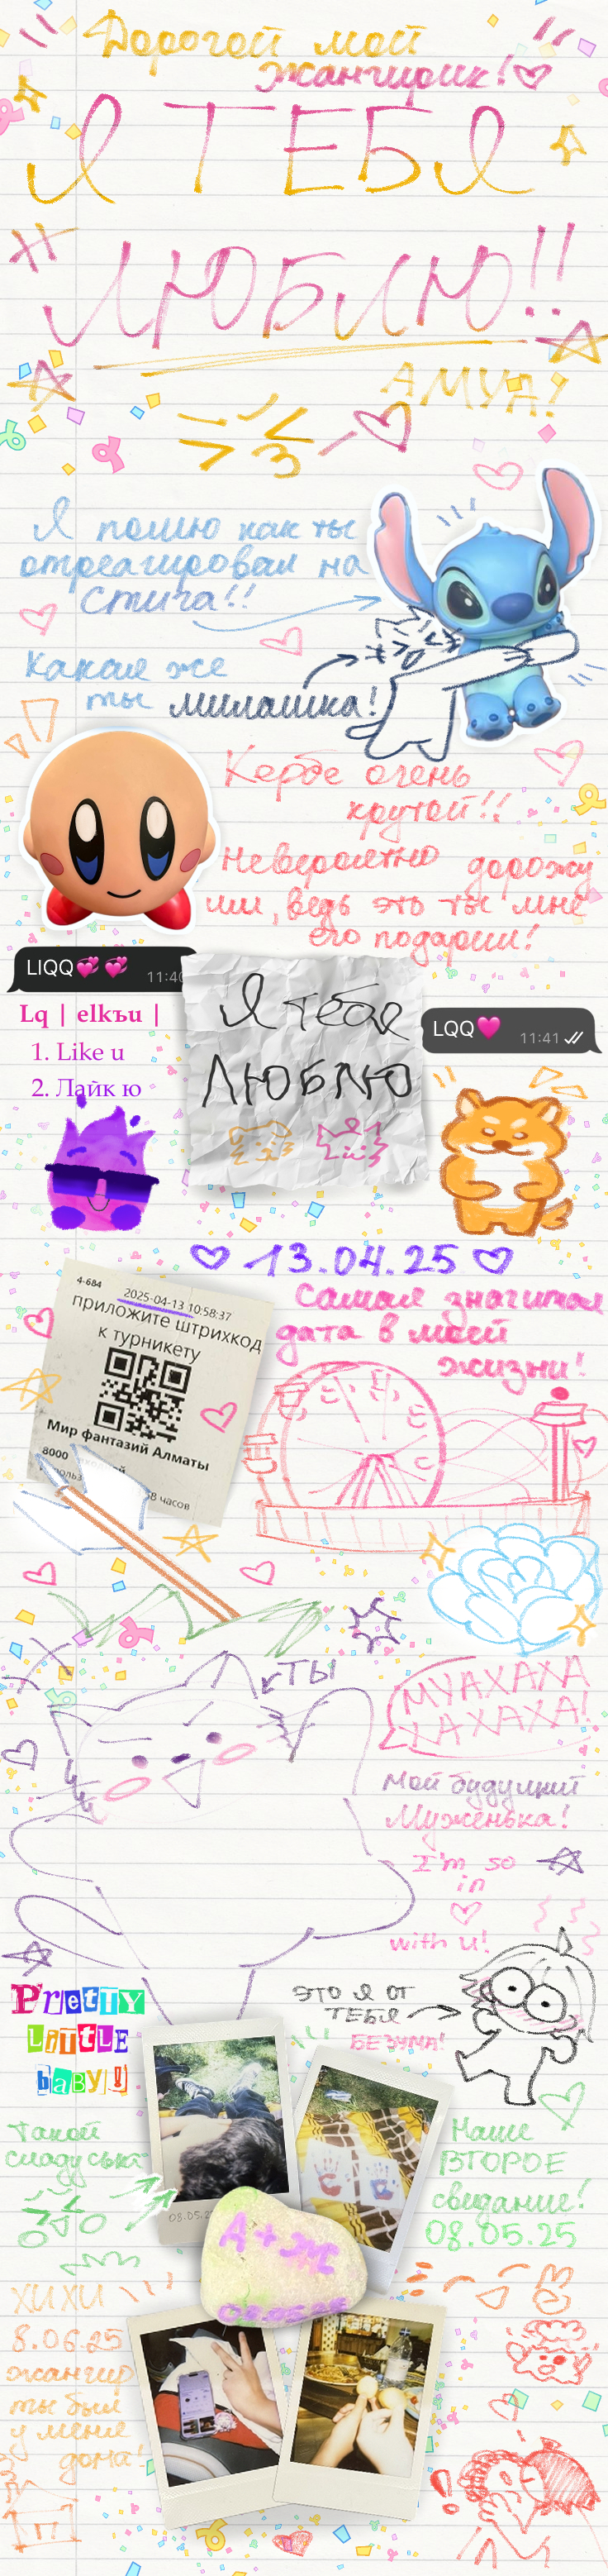 Дорогой мой
Жангирик!
Я ТЕБЯ
ЛЮБЛЮ!!
АМУА!
Я помню как ты
отреагировал на
Стича!!
Какая же
ты милашка!
Кербе очень
крутой!!
Невероятно дорожу
им, ведь это ты мне
его подарил!
LIQQ💞💞
11:40
Lq | elkъu |
1. Like u
2. Лайк ю
Я тебя
ЛЮБЛЮ
LQQ💗
11:41
13.04.25
4-684
2025-04-13 10:58:37
приложите штрихкод
к турникету
Мир фантазий Алматы
8000
часов
Самая значимая
дата в моей
жизни!
ТЫ
МУАХАХА
ХАХАХА!
Мой будущий
Муженька!
I'm so
in
with u!
ЭТО Я ОТ
ТЕБЯ
БЕЗУМА!
Pretty
Little
baby!!
Такой
сладуська
Наше
ВТОРОЕ
свидание!
08.05.25
A+Ж
08.05.25
ХИХИ
8.06.25
жангир
ты был
у меня
дома!